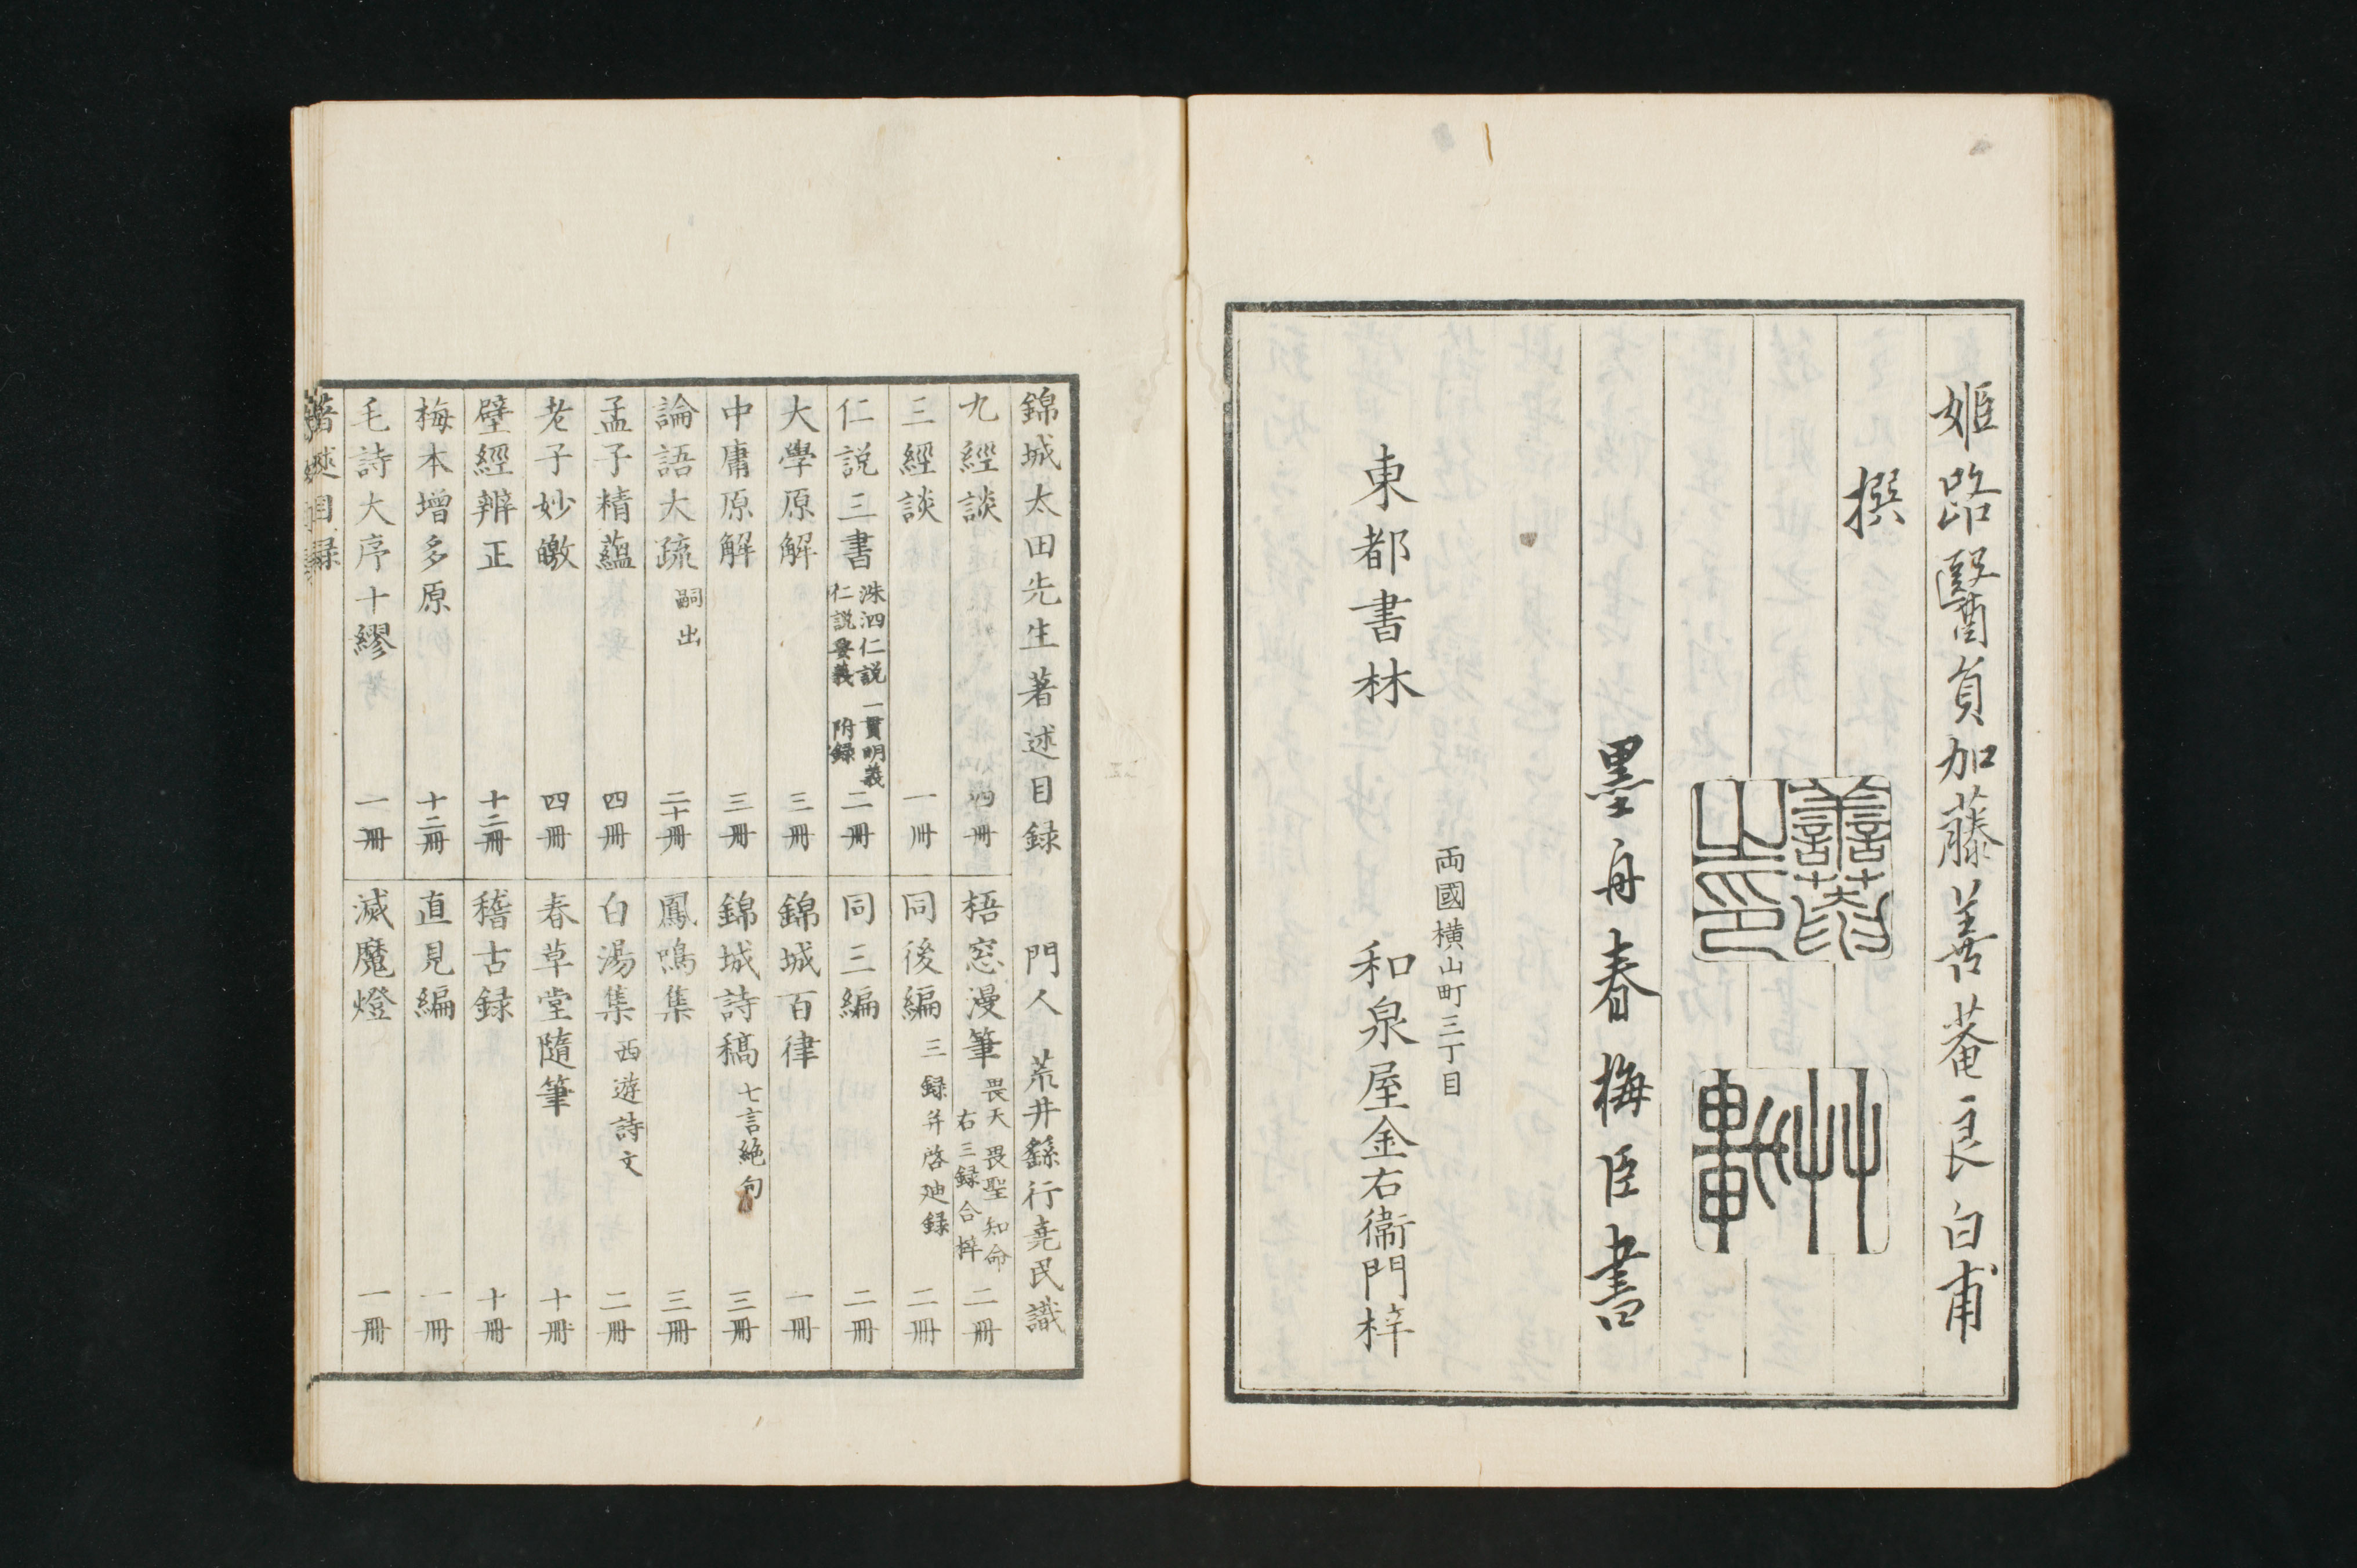 姫路醫員加藤善菴良白甫
撰
善菴之印
艸軒
墨舟春梅臣書
兩國横山町三丁目
東都書林　和泉屋金右衞門梓
錦城太田先生著述目録　門人　荒井繇行堯民識
九經談　四冊
梧窓漫筆　畏天　畏聖　知命　右三録合梓　二冊
三經談　一冊
同後編　三録并啓廸録　二冊
仁説三書　洙泗仁説　一貫明義　仁説要義　附録　二冊
同三編　二冊
大學原解　三冊
錦城百律　一冊
中庸原解　三冊
錦城詩稿　七言絶句　三冊
論語大疏　嗣出　二十冊
鳳鳴集　三冊
孟子精蘊　四冊
白湯集　西遊詩文　二冊
老子妙皦　四冊
春草堂隨筆　十冊
壁經辨正　十二冊
稽古録　十冊
梅本增多原　十二冊
直見編　一冊
毛詩大序十繆　一冊
滅魔燈　一冊
著述目録